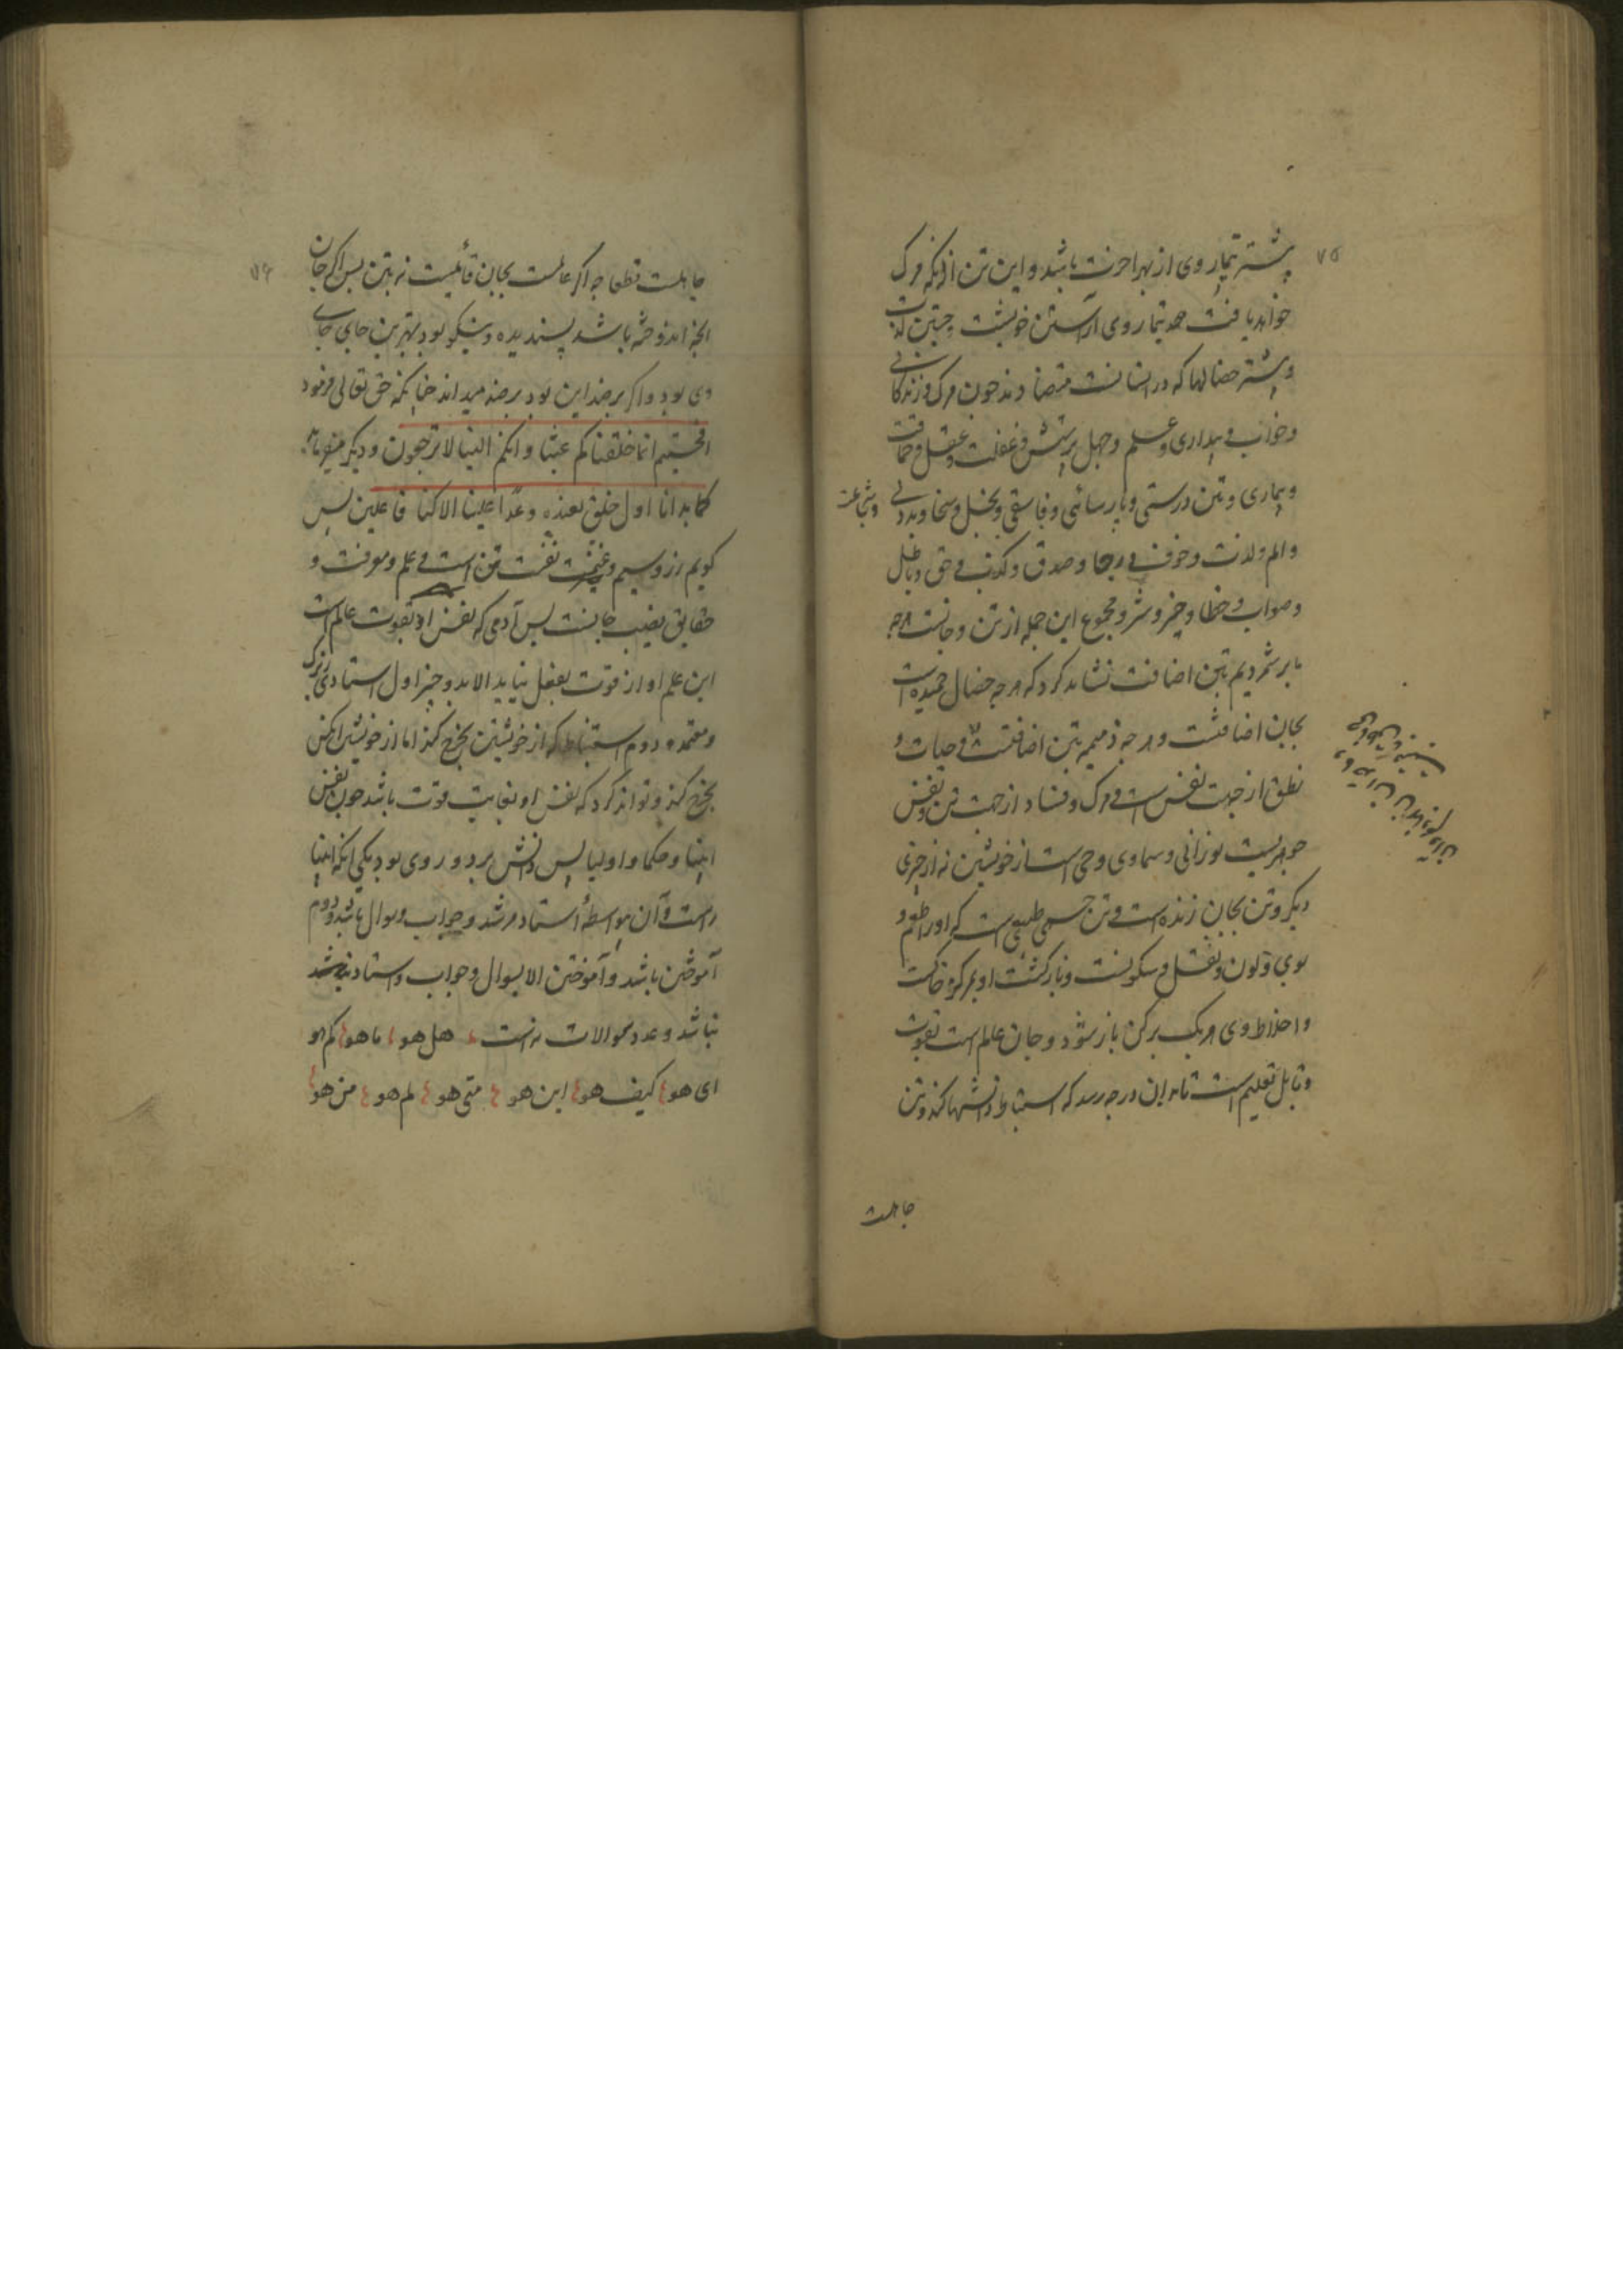 ۷۵
پیشتر تیمار وی از بهر آخرت باشد و این تن از آنکه مرک
خواهد یافت همه تیمار وی آراستن خویشت
و بیشتر خصالها که در انسانست متضادند چون مرک و زندکانی
و خواب و بیداری و علم و جهل و غفلت و عقل و حماقت
و بیماری و تن درستی و پارسائی و فاسقی و بخل و سخا و بددلی و شجاعت
و الم و لذت و خوف و رجا و صدق و کذب و حق و باطل
و صواب و خطا و خیر و شر و مجموع این جمله از تن و جانست هرچه
ما بر شمردیم بتن اضافت نشاید کرد که هر چه خصال حمیده است
بجان اضافتست و هر چه ذمیمه بتن اضافتست و حیات و
نطق از جهت نفس است و مرک و فساد از جهت تن و نفس
جوهریست نورانی و سماوی و حی است از خویشتن نه از چیزی
دیکر و تن بجان زنده است و تن جسمی طبیعی است که او را طعم و
بوی و لون و ثقل و سکونست و بازکشت او بمرکز خاکست
و اخلاط وی هر یک برکن باز شود و جان عالم است بقوت
و قابل تعلیم است تا بدان درجه رسد که استنباط دانشها کند و تن
جاهلست
۷۶
جاهلست قطعا چه اکر عالمست بجان قائمیست نه بتن پس اکر جان
آنچه اندوخته باشد پسندیده و نیکو بود بهترین جای جای
وی بود و اکر بر ضد این بود بر ضد میداند چنانکه حق تعالی فرمود
افحسبتم انما خلقناکم عبثا و انکم الینا لا ترجعون و دیکر میفرماید
کما بدانا اول خلق نعیده وعدا علینا انا کنا فاعلین پس
کویم زر و سیم و نعمت تن است و علم و معرفت و
حقایق نصیب جانست پس آدمی که نفس او بقوت عالم است
این علم او از قوت بفعل نیاید الا بدو چیز اول استادی بزرک
و معتمد و دوم استنباط که از خویشتن بخرج کند اما از خویشتن آنکس
بخرج کند و تواند کرد که نفس او بغایت قوت باشد چون نفس
انبیا و حکما و اولیا پس دانش بر دو روی بود یکی آنکه انبیا
راست و آن بواسطهٔ استاد مرشد و جواب و سوال باشد و دوم
آموختن باشد و آموختن الا بسوال و جواب و استاد مرشد
نباشد و عدد سوالات نه است هل هو ما هو کم هو
ای هو کیف هو این هو متی هو لم هو من هو